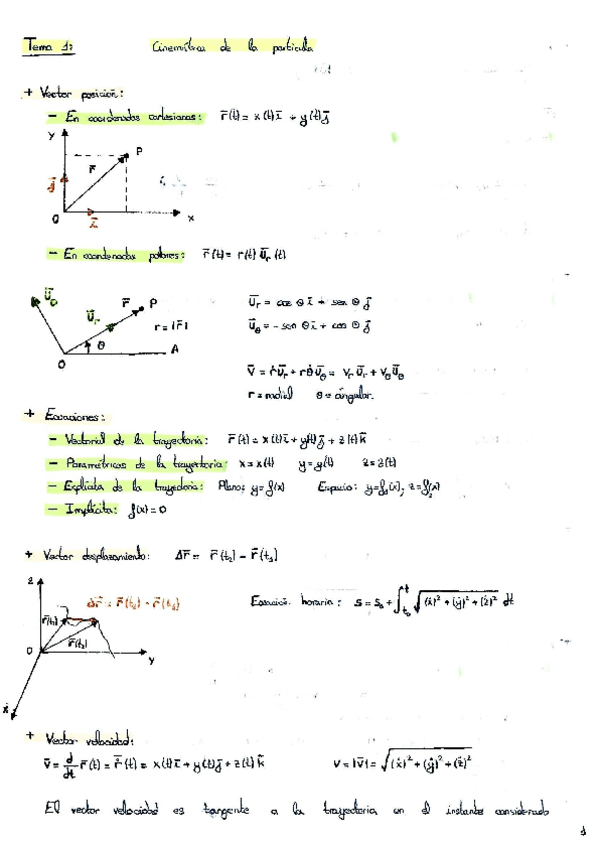 Tema 1: Cinemática de la partícula
+ Vector posición:
- En coordenadas cartesianas: r̄(t) = x(t) ī + y(t) j̄
y
P
r̄
j̄
O
ī
x
- En coordenadas polares: r̄(t) = r(t) ūr (t)
ūθ
ūr
r̄
P
r = |r̄|
θ
A
O
ūr = cos θ ī + sen θ j̄
ūθ = - sen θ ī + cos θ j̄
v̄ = ṙ ūr + r θ̇ ūθ = vr ūr + vθ ūθ
r = radial θ = ángular.
+ Ecuaciones:
- Vectorial de la trayectoria: r̄(t) = x(t) ī + y(t) j̄ + z(t) k̄
- Paramétricas de la trayectoria: x = x(t) y = y(t) z = z(t)
- Explícita de la trayectoria: Plano: y = f(x) Espacio: y = f₁(x); z = f₂(x)
- Implícita: f(x) = 0
+ Vector desplazamiento: Δr̄ = r̄(t₂) - r̄(t₁)
z
Δr̄ = r̄(t₂) - r̄(t₁)
r̄(t₁)
r̄(t₂)
O
y
x
Ecuación horaria: s = s₀ + ∫ₜ₀ᵗ √((ẋ)² + (ẏ)² + (ż)²) dt
+ Vector velocidad:
v̄ = d/dt r̄(t) = r̄̇(t) = ẋ(t) ī + ẏ(t) j̄ + ż(t) k̄ v = |v̄| = √((ẋ)² + (ẏ)² + (ż)²)
El vector velocidad es tangente a la trayectoria en el instante considerado
1